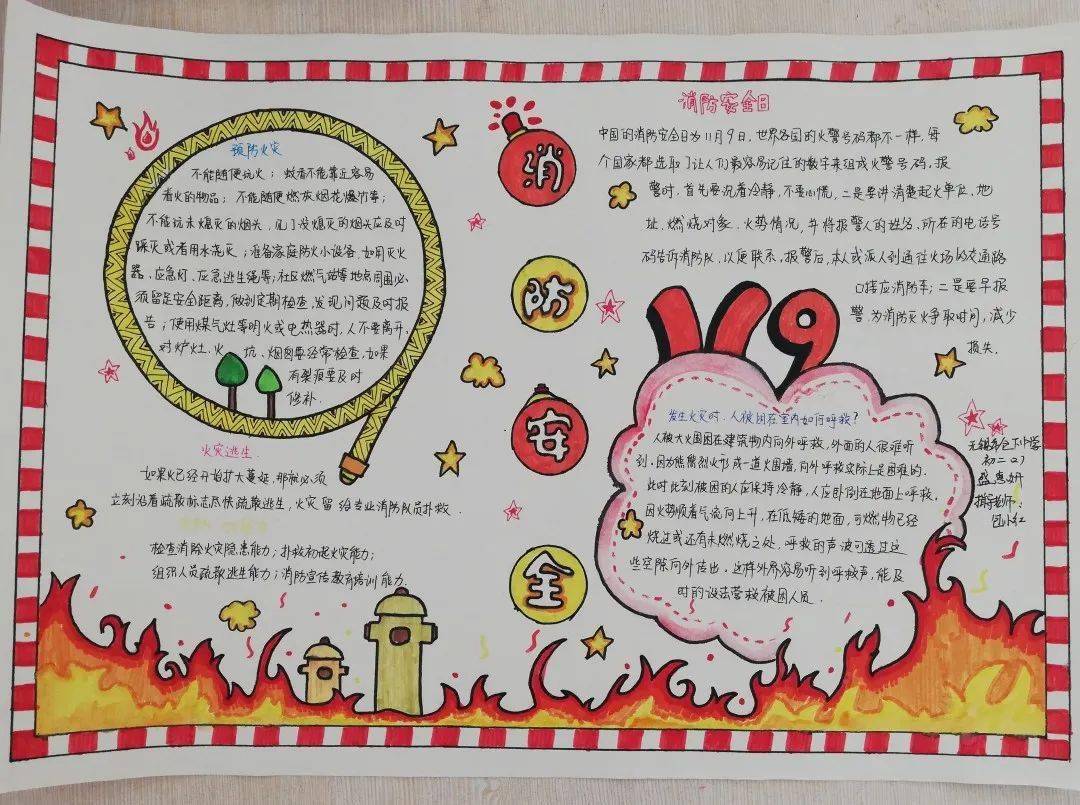 预防火灾
不能随便玩火；蚊香不能靠近容易
着火的物品；不能随便燃放烟花爆竹等；
不能玩未熄灭的烟头，见了没熄灭的烟头应及时
踩灭或者用水浇灭；准备家庭防火小设备，如用灭火
器、应急灯、应急逃生绳等；社区燃气站等地点周围必
须留足安全距离，做到定期检查，发现问题及时报
告；使用煤气灶等明火或电热器时，人不要离开，
对炉灶、火坑、烟囱要经常检查，如果
有裂痕要及时
修补.
火灾逃生
如果火已经开始扩大蔓延，那就必须
立刻沿着疏散标志尽快疏散逃生，火灾留给专业消防队员扑救.
检查消除火灾隐患能力；扑救初起火灾能力；
组织人员疏散逃生能力；消防宣传教育培训能力.
消
防
安
全
消防安全日
中国的消防安全日为11月9日，世界各国的火警号码都不一样，每
个国家都选取了让人们最容易记住的数字来组成火警号码，报
警时，首先要沉着冷静，不要心慌，二是要讲清楚起火单位、地
址、燃烧对象、火势情况，并将报警人的姓名、所在的电话号
码告诉消防队，以便联系，报警后，本人或派人到通往火场的交通路
口接应消防车；二是要早报
警，为消防灭火争取时间，减少
损失.
119
发生火灾时，人被困在室内如何呼救？
人被大火围困在建筑物内向外呼救，外面的人很难听
到，因为熊熊烈火形成一道火围墙，向外呼救实际上是困难的.
此时此刻被困的人应保持冷静，人应卧倒在地面上呼救，
因火势顺着气流向上升，在低矮的地面，可燃物已经
烧过或还有未燃烧之处，呼救的声波可透过这
些空隙向外传出，这样外界容易听到呼救声，能及
时的设法营救被困人员.
初二（2）
指导老师：